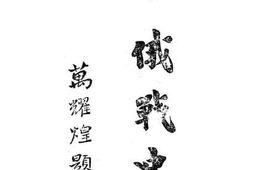 俄戰史
萬耀煌題